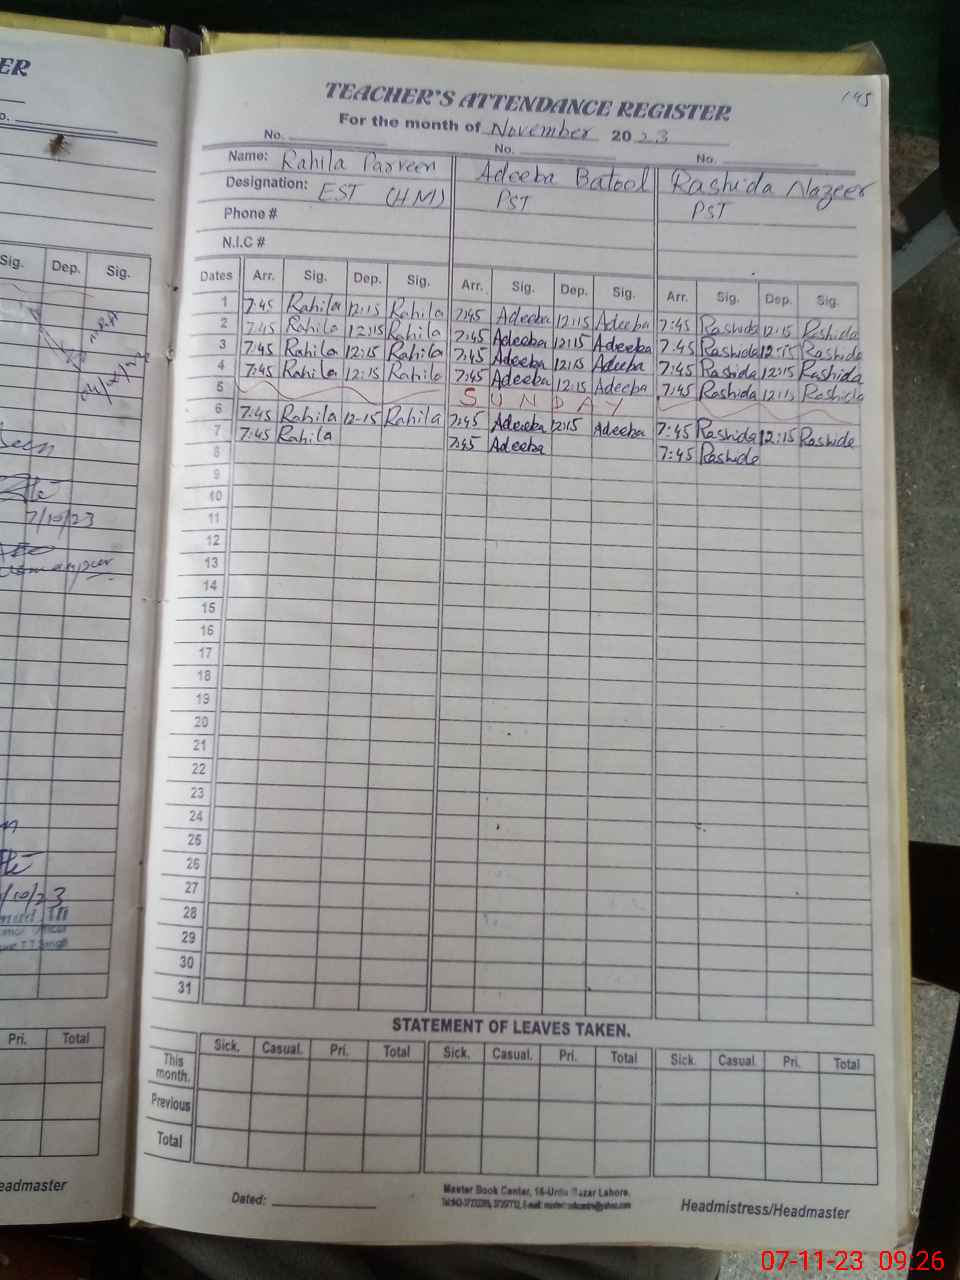 ER
TEACHER'S ATTENDANCE REGISTER
145
For the month of November 2023
No. No. No.
Name: Rahila Parveen Adeeba Batool Rashida Nazeer
Designation: EST (HM) PST PST
Phone #
N.I.C #
Sig. Dep. Sig.
Dates Arr. Sig. Dep. Sig. Arr. Sig. Dep. Sig. Arr. Sig. Dep. Sig.
1 7:45 Rahila 12:15 Rahila 7:45 Adeeba 12:15 Adeeba 7:45 Rashida 12:15 Rashida
2 7:45 Rahila 12:15 Rahila 7:45 Adeeba 12:15 Adeeba 7:45 Rashida 12:15 Rashida
3 7:45 Rahila 12:15 Rahila 7:45 Adeeba 12:15 Adeeba 7:45 Rashida 12:15 Rashida
4 7:45 Rahila 12:15 Rahila 7:45 Adeeba 12:15 Adeeba 7:45 Rashida 12:15 Rashida
5 SUNDAY
6 7:45 Rahila 12-15 Rahila 7:45 Adeeba 12:15 Adeeba 7:45 Rashida 12:15 Rashida
7 7:45 Rahila 7:45 Adeeba 7:45 Rashida
8
9
10
11
12
13
14
15
16
17
18
19
20
21
22
23
24
25
26
27
28
29
30
31
7/10/23
/10/23
STATEMENT OF LEAVES TAKEN.
Pri. Total
Sick. Casual. Pri. Total Sick. Casual. Pri. Total Sick. Casual. Pri. Total
This month.
Previous
Total
eadmaster
Dated:
Master Book Center, 16-Urdu Bazar Lahore.
Headmistress/Headmaster
07-11-23 09:26